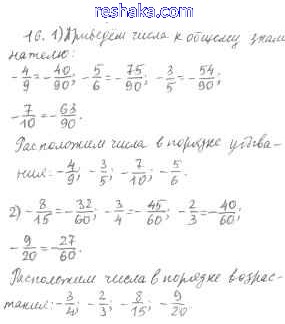 reshaka.com
16. 1) Приведём числа к общему знаме
нателю:
-4/9 = -40/90; -5/6 = -75/90; -3/5 = -54/90;
-7/10 = -63/90.
Расположим числа в порядке убыва-
ния: -4/9; -3/5; -7/10; -5/6.
2) -8/15 = -32/60; -3/4 = -45/60; -2/3 = -40/60;
-9/20 = -27/60.
Расположим числа в порядке возрас-
тания: -3/4; -2/3; -8/15; -9/20